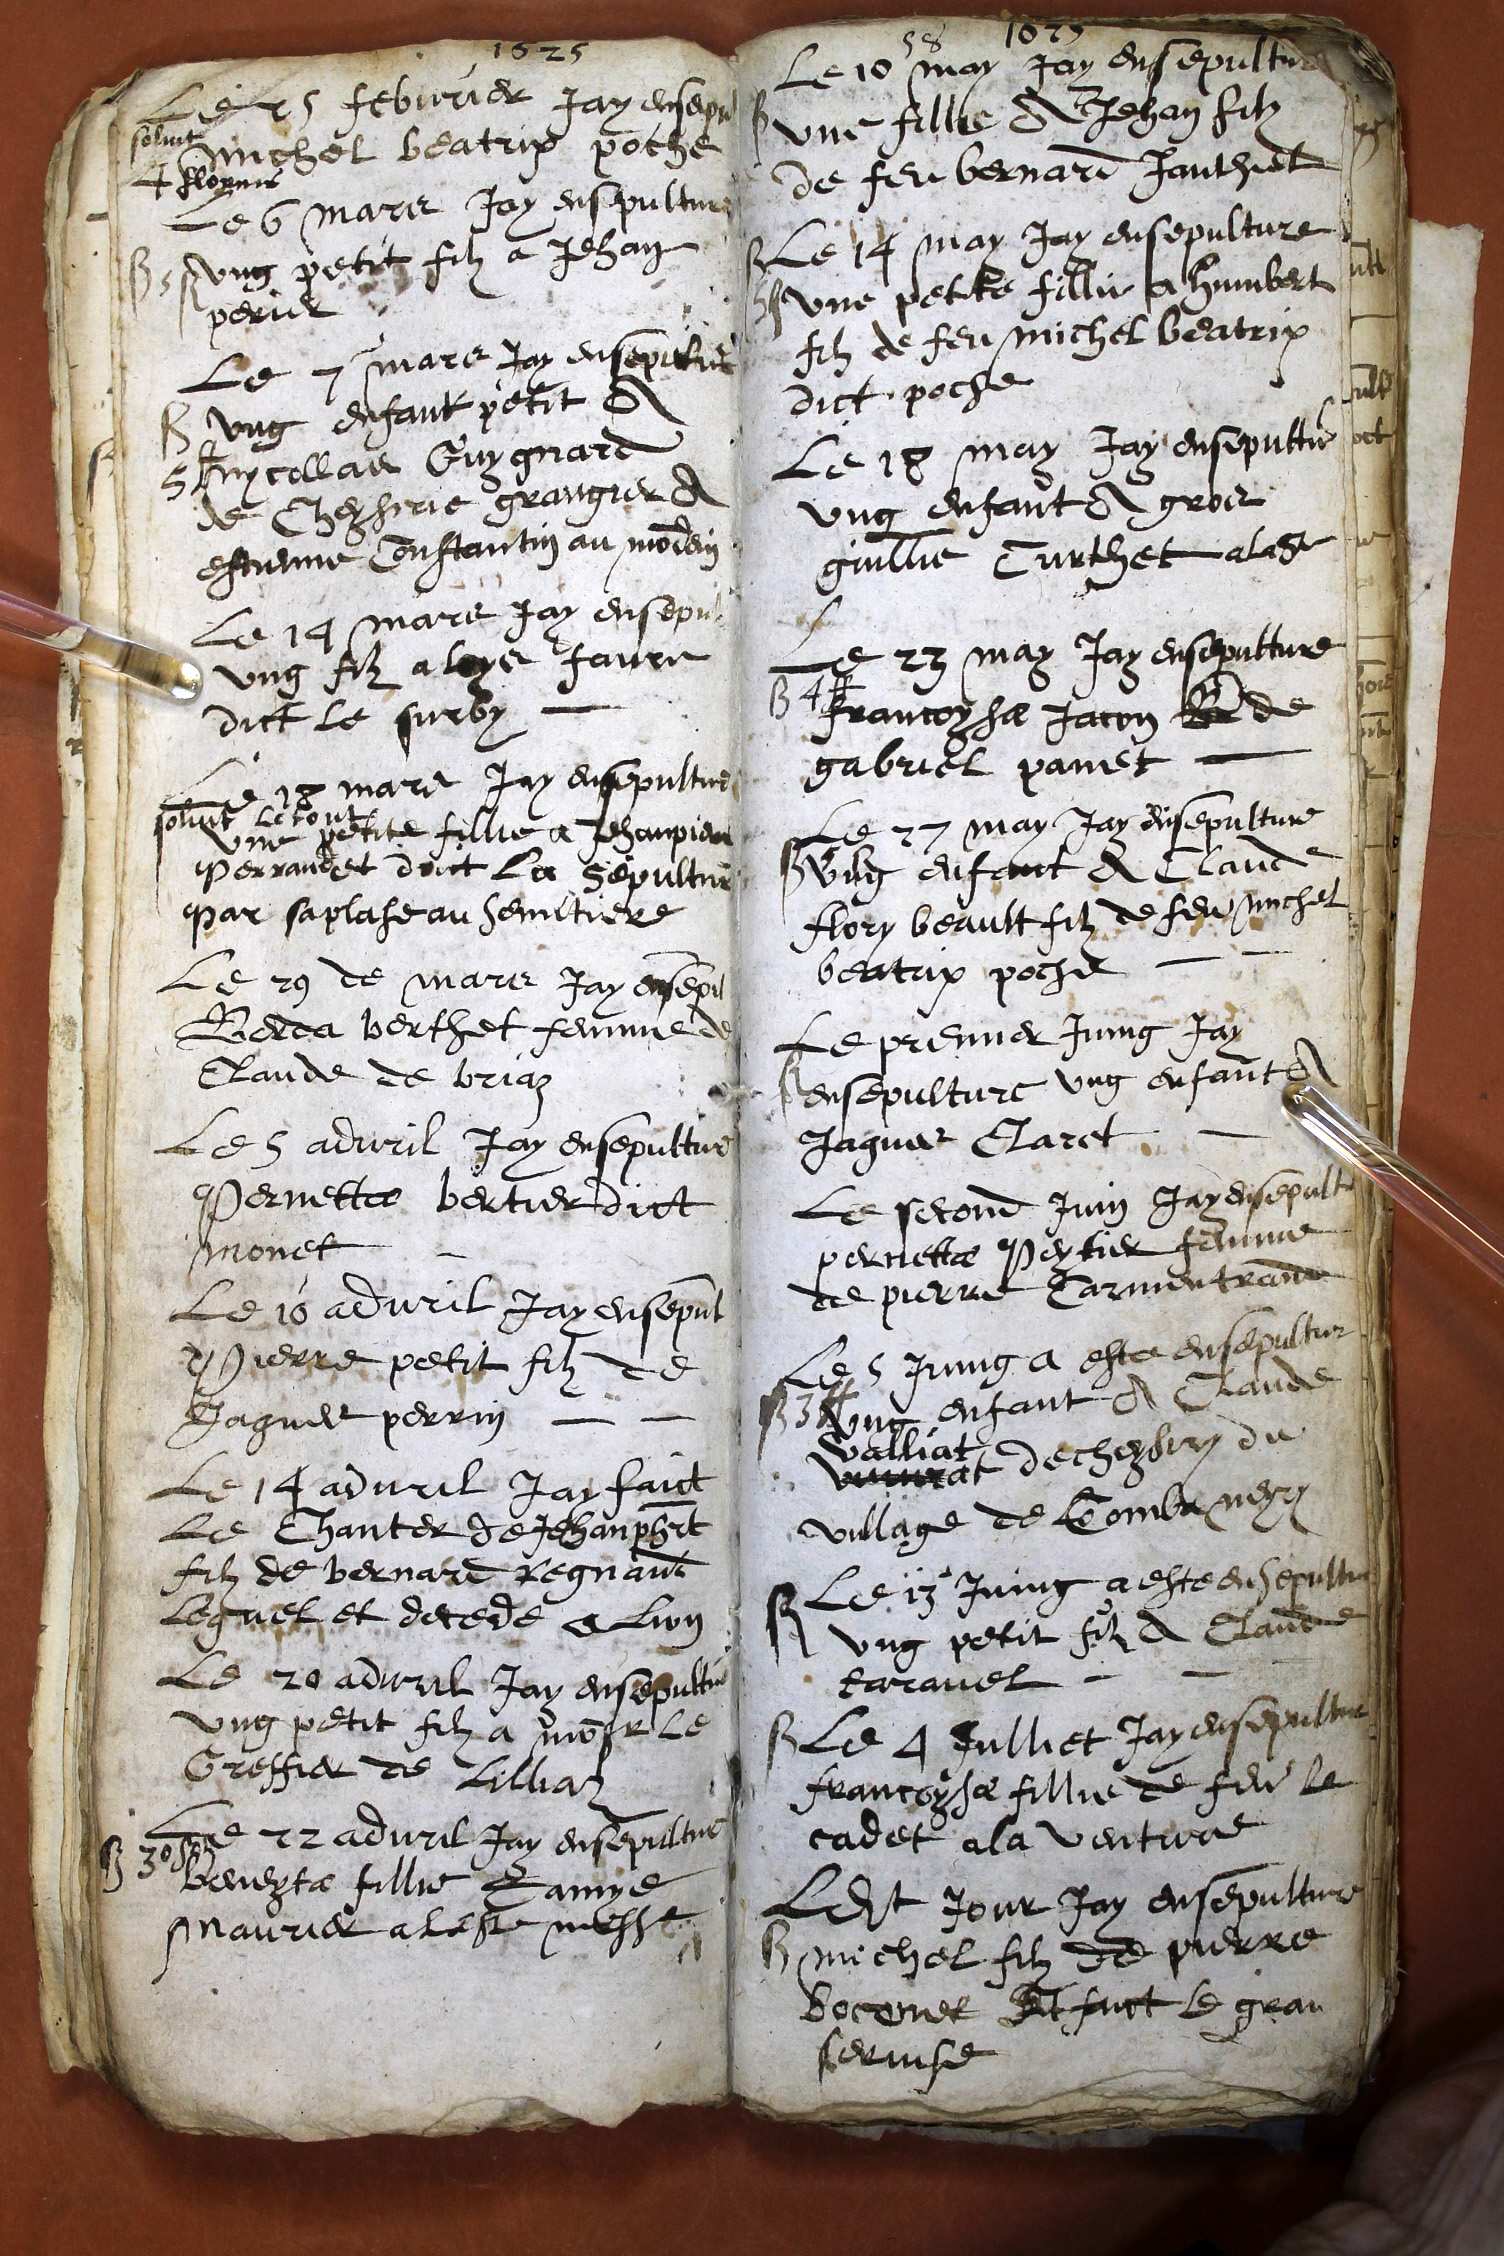 1625
Le 25 feburier Jay ensepul
soluit
michel beatrix poche
4 floryns
Le 6 mars Jay ensepulture
ung petit filz a Jehan
perier
Le 7 mars Jay ensepulture
ung enfant petit A
nycollas Guygnard
de Cheysirie grangier A
estienne Constantin au
Le 14 mars Jay ensepul
ung filz a loys faure
dict le surby
Le 18 mars Jay ensepulture
soluit le tout
une petite fillie a Jehanpierre
Perrandet doict La Sepulture
Par saplase au semitiere
Le 29 de mars Jay ensepul
berthet femme de
Claude de briaz
Le 5 advril Jay ensepulture
Pernette bertier dict
monet
Le 10 advril Jay ensepult
Pierre petit filz de
Jaques perrin
Le 14 advril Jay faict
Le Chanter de
filz de bernard Regnaud
Lequel et decede a Lion
Le 20 advril Jay ensepultur
ung petit filz a monsr le
Greffier de Lilliaz
Le 22 advril Jay ensepulture
beneyta fillie
Maurier messe
58 1625
Le 10 may Jay ensepulture
une fillie A Jehan filz
de feu bernard Janthied
Le 14 may Jay ensepulture
une petite fillie a humbert
filz de feu michel beatrix
dict poche
Le 18 may Jay ensepultur
ung enfant A gros
gullie Curthet
Le 23 may Jay ensepulture
4 ff
francoysa Jacon de
gabriel panet
Le 27 may Jay ensepulture
ung enfant A Claude
flory beault filz de feu michel
beatrix poche
Le premier Juing Jay
ensepulture ung enfant A
Jaques Claret
Le second Juin Jay ensepult
pernette Peytier femme
de pierre Carmentrand
Le 5 Juing a este ensepultur
3 ff
ung enfant A Claude
valliat
de cheysiry du
village de Comba nery
Le 13 Juing a este ensepultur
ung petit filz A Claude
caravel
Le 4 Julliet Jay ensepultur
francoysa fillie de feu le
cadet a la venture
Ledt Jour Jay ensepulture
michel filz de pierre
boconet et faict le gran
servise